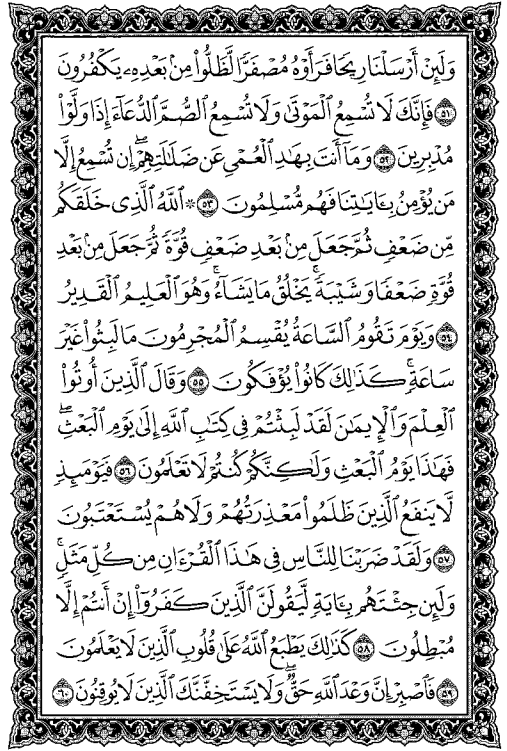 وَلَئِنْ أَرْسَلْنَا رِيحًا فَرَأَوْهُ مُصْفَرًّا لَّظَلُّوا۟ مِنۢ بَعْدِهِۦ يَكْفُرُونَ
﴿٥١﴾ فَإِنَّكَ لَا تُسْمِعُ ٱلْمَوْتَىٰ وَلَا تُسْمِعُ ٱلصُّمَّ ٱلدُّعَآءَ إِذَا وَلَّوْا۟
مُدْبِرِينَ ﴿٥٢﴾ وَمَآ أَنتَ بِهَـٰدِ ٱلْعُمْىِ عَن ضَلَـٰلَتِهِمْ ۖ إِن تُسْمِعُ إِلَّا
مَن يُؤْمِنُ بِـَٔايَـٰتِنَا فَهُم مُّسْلِمُونَ ﴿٥٣﴾ ۞ ٱللَّهُ ٱلَّذِى خَلَقَكُم
مِّن ضَعْفٍ ثُمَّ جَعَلَ مِنۢ بَعْدِ ضَعْفٍ قُوَّةً ثُمَّ جَعَلَ مِنۢ بَعْدِ
قُوَّةٍ ضَعْفًا وَشَيْبَةً ۚ يَخْلُقُ مَا يَشَآءُ ۖ وَهُوَ ٱلْعَلِيمُ ٱلْقَدِيرُ
﴿٥٤﴾ وَيَوْمَ تَقُومُ ٱلسَّاعَةُ يُقْسِمُ ٱلْمُجْرِمُونَ مَا لَبِثُوا۟ غَيْرَ
سَاعَةٍ ۚ كَذَٰلِكَ كَانُوا۟ يُؤْفَكُونَ ﴿٥٥﴾ وَقَالَ ٱلَّذِينَ أُوتُوا۟
ٱلْعِلْمَ وَٱلْإِيمَـٰنَ لَقَدْ لَبِثْتُمْ فِى كِتَـٰبِ ٱللَّهِ إِلَىٰ يَوْمِ ٱلْبَعْثِ ۖ
فَهَـٰذَا يَوْمُ ٱلْبَعْثِ وَلَـٰكِنَّكُمْ كُنتُمْ لَا تَعْلَمُونَ ﴿٥٦﴾ فَيَوْمَئِذٍ
لَّا يَنفَعُ ٱلَّذِينَ ظَلَمُوا۟ مَعْذِرَتُهُمْ وَلَا هُمْ يُسْتَعْتَبُونَ
﴿٥٧﴾ وَلَقَدْ ضَرَبْنَا لِلنَّاسِ فِى هَـٰذَا ٱلْقُرْءَانِ مِن كُلِّ مَثَلٍ ۚ
وَلَئِن جِئْتَهُم بِـَٔايَةٍ لَّيَقُولَنَّ ٱلَّذِينَ كَفَرُوٓا۟ إِنْ أَنتُمْ إِلَّا
مُبْطِلُونَ ﴿٥٨﴾ كَذَٰلِكَ يَطْبَعُ ٱللَّهُ عَلَىٰ قُلُوبِ ٱلَّذِينَ لَا يَعْلَمُونَ
﴿٥٩﴾ فَٱصْبِرْ إِنَّ وَعْدَ ٱللَّهِ حَقٌّ ۖ وَلَا يَسْتَخِفَّنَّكَ ٱلَّذِينَ لَا يُوقِنُونَ ﴿٦٠﴾